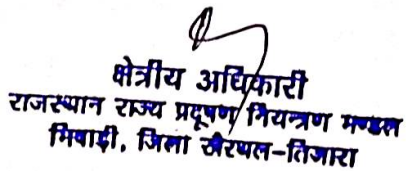 क्षेत्रीय अधिकारी
राजस्थान राज्य प्रदूषण नियन्त्रण मण्डल
भिवाड़ी, जिला खैरथल-तिजारा